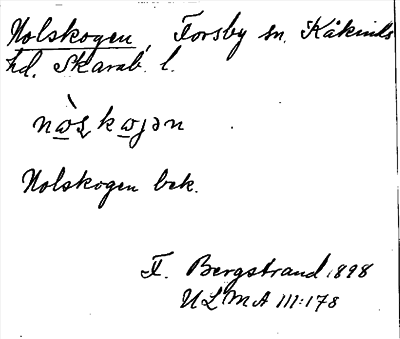 Nolskogen, Forsby sn. Kåkinds
hd. Skarab. l.
nɷ̀ꞎkɷjən
Nolskogen bek.
F. Bergstrand 1898
ULMA 111:178